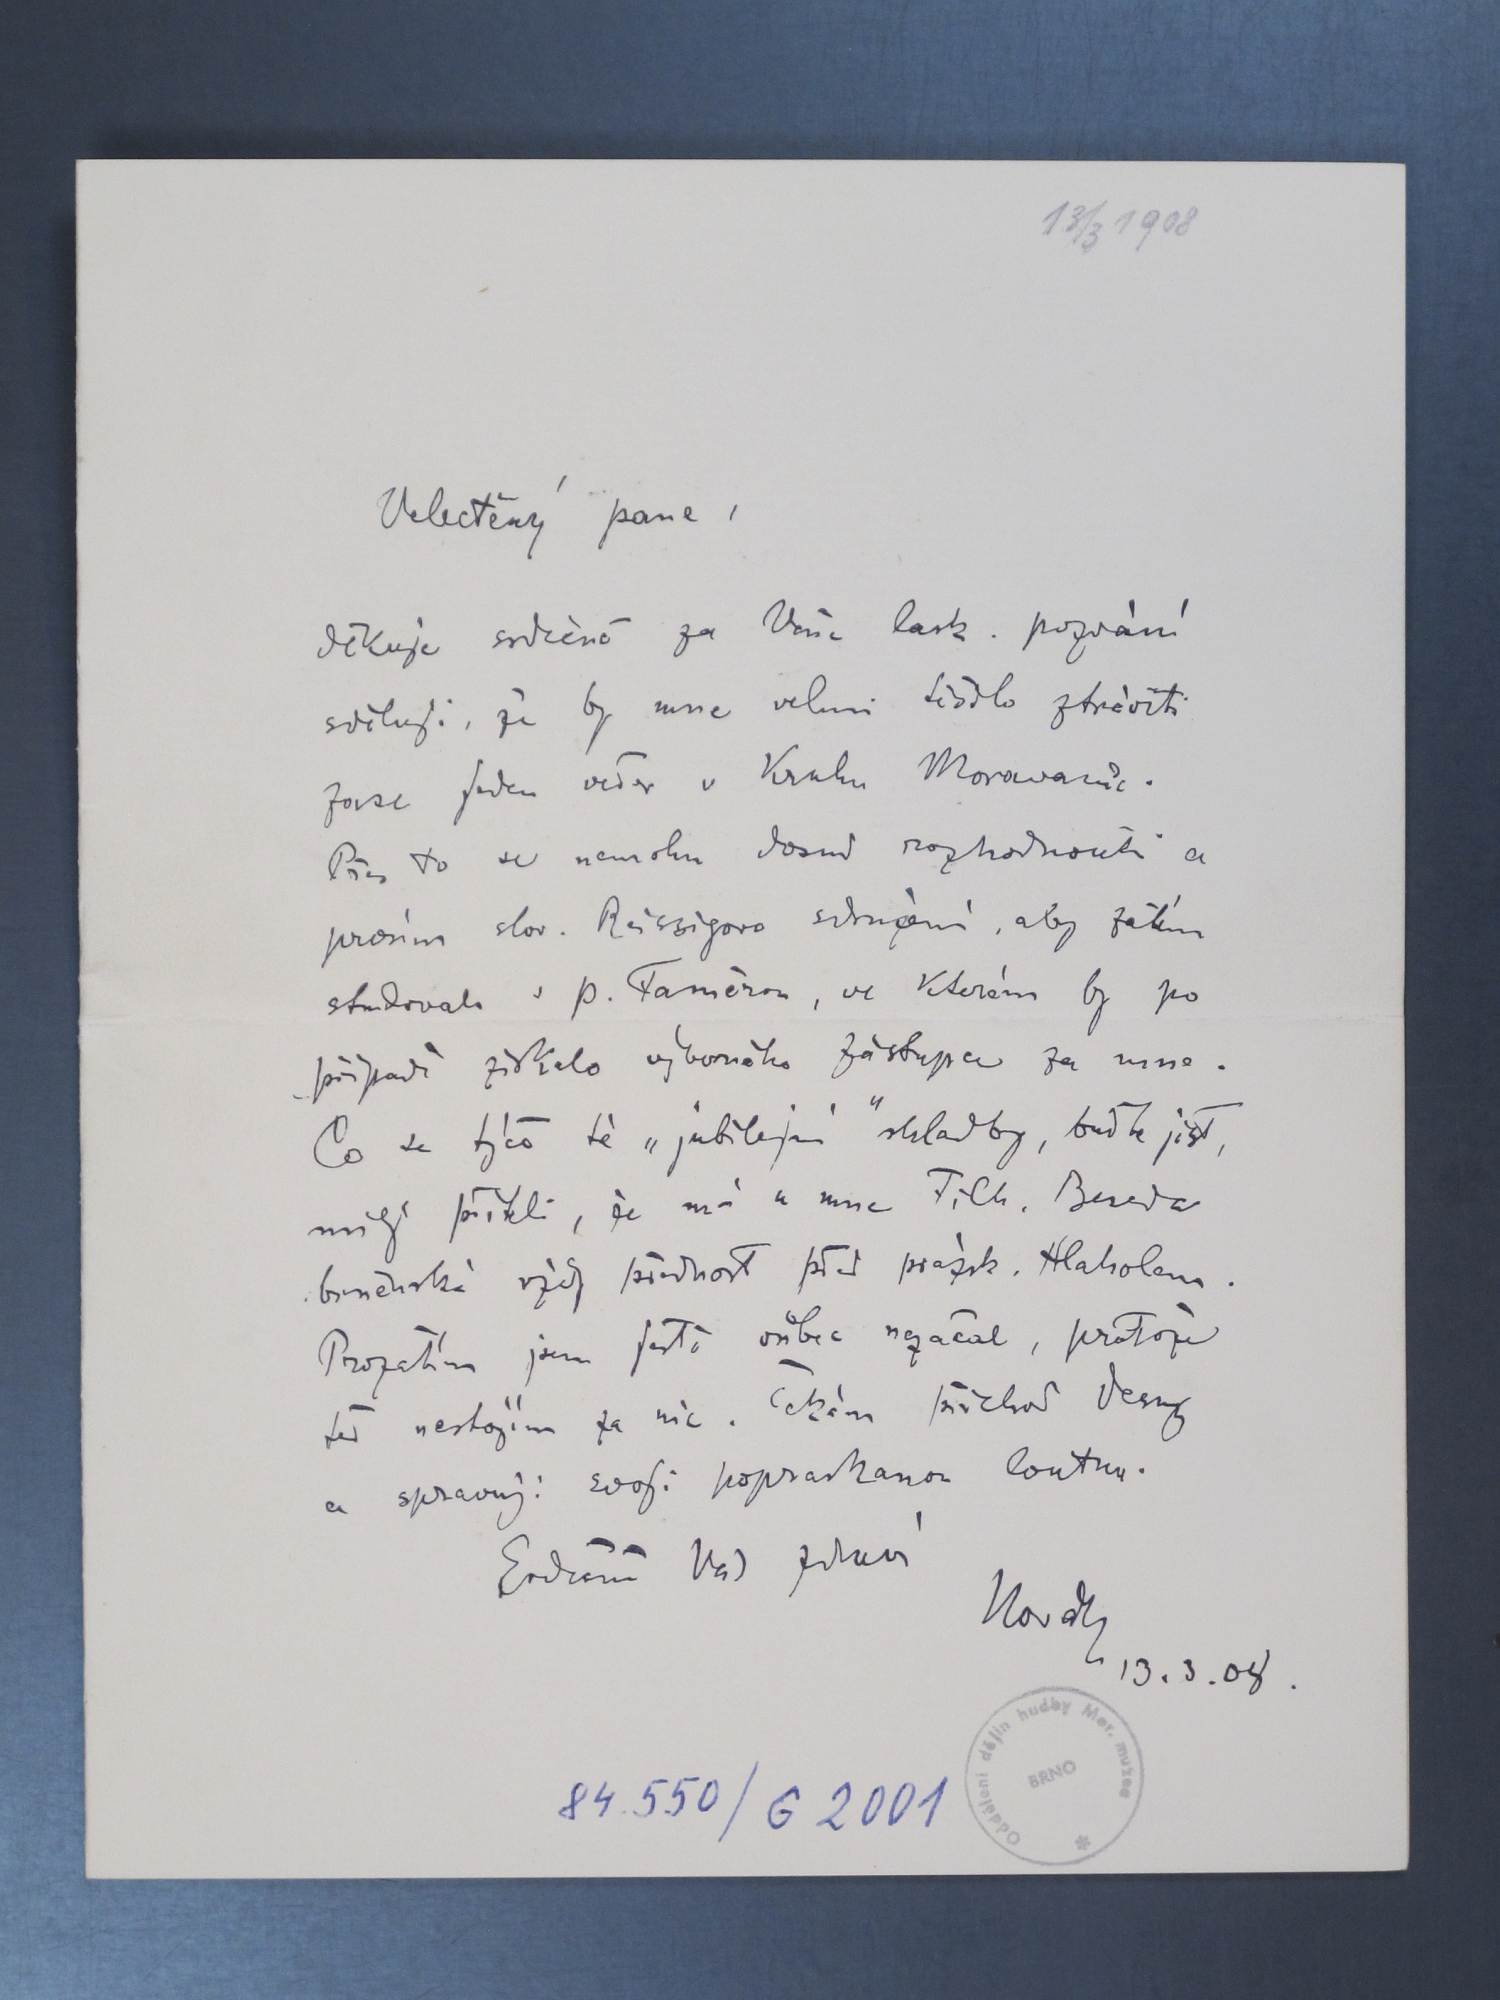 13/3 1908
Velectěný pane,
děkuje srdečně za Vaše lask. pozvání
sděluji, že by mne velmi těšilo ztráviti
zase jeden večer v Kruhu Moravanův.
Přes to se nemohu dosud rozhodnouti a
prosím slov. Reissigovo sdružení, aby zatím
studovalo s p. Faměrou, ve kterém by po
případě získalo výborného zástupce za mne.
Co se týče té „jubilejní" skladby, buďte jist,
milý příteli, že má u mne Filh. Beseda
brněnská vždy přednost před pražsk. Hlaholem.
Prozatím jsem ještě vůbec nezačal, protože
teď nestojím za nic. Čekám příchod Vesny
a spravuji svoji popraskanou loutnu.
Srdečně Vás zdraví
Novák
13.3.08.
84.550/G 2001
Oddělení dějin hudby Mor. musea
BRNO